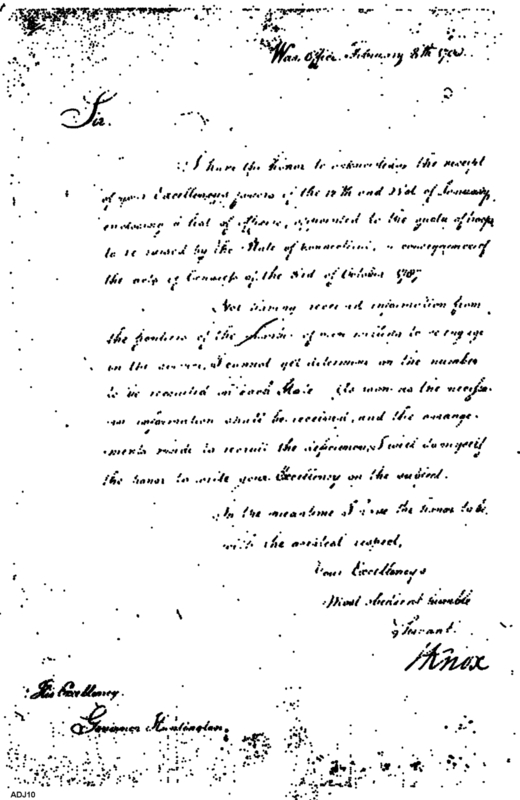 War Office February 8th 1788.
Sir.
I have the honor to acknowledge the receipt
of your Excellencys favors of the 17th and 23d of January,
enclosing a list of officers, appointed to the quota of troops
to be raised by the State of Connecticut, in consequence of
the acts of Congress of the 3rd of October 1787
Not having received information from
the frontiers of the number of men willing to re engage
in the service, I cannot yet determine on the number
to be recruited in each State. As soon as the necessa-
ry information shall be received, and the arrange-
ments made to recruit the deficiency, I will do myself
the honor to write your Excellency on the subject.
In the meantime I have the honor to be
with the greatest respect,
Your Excellencys
Most obedient humble
Servant.
HKnox
His Excellency.
Governor Huntington.
ADJ10